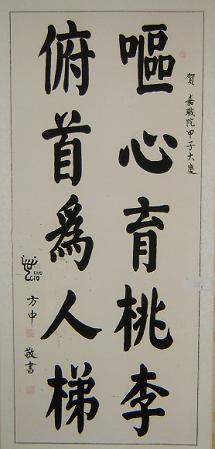 賀嘉職院甲子大慶
嘔心育桃李
俯首為人梯
方中敬書